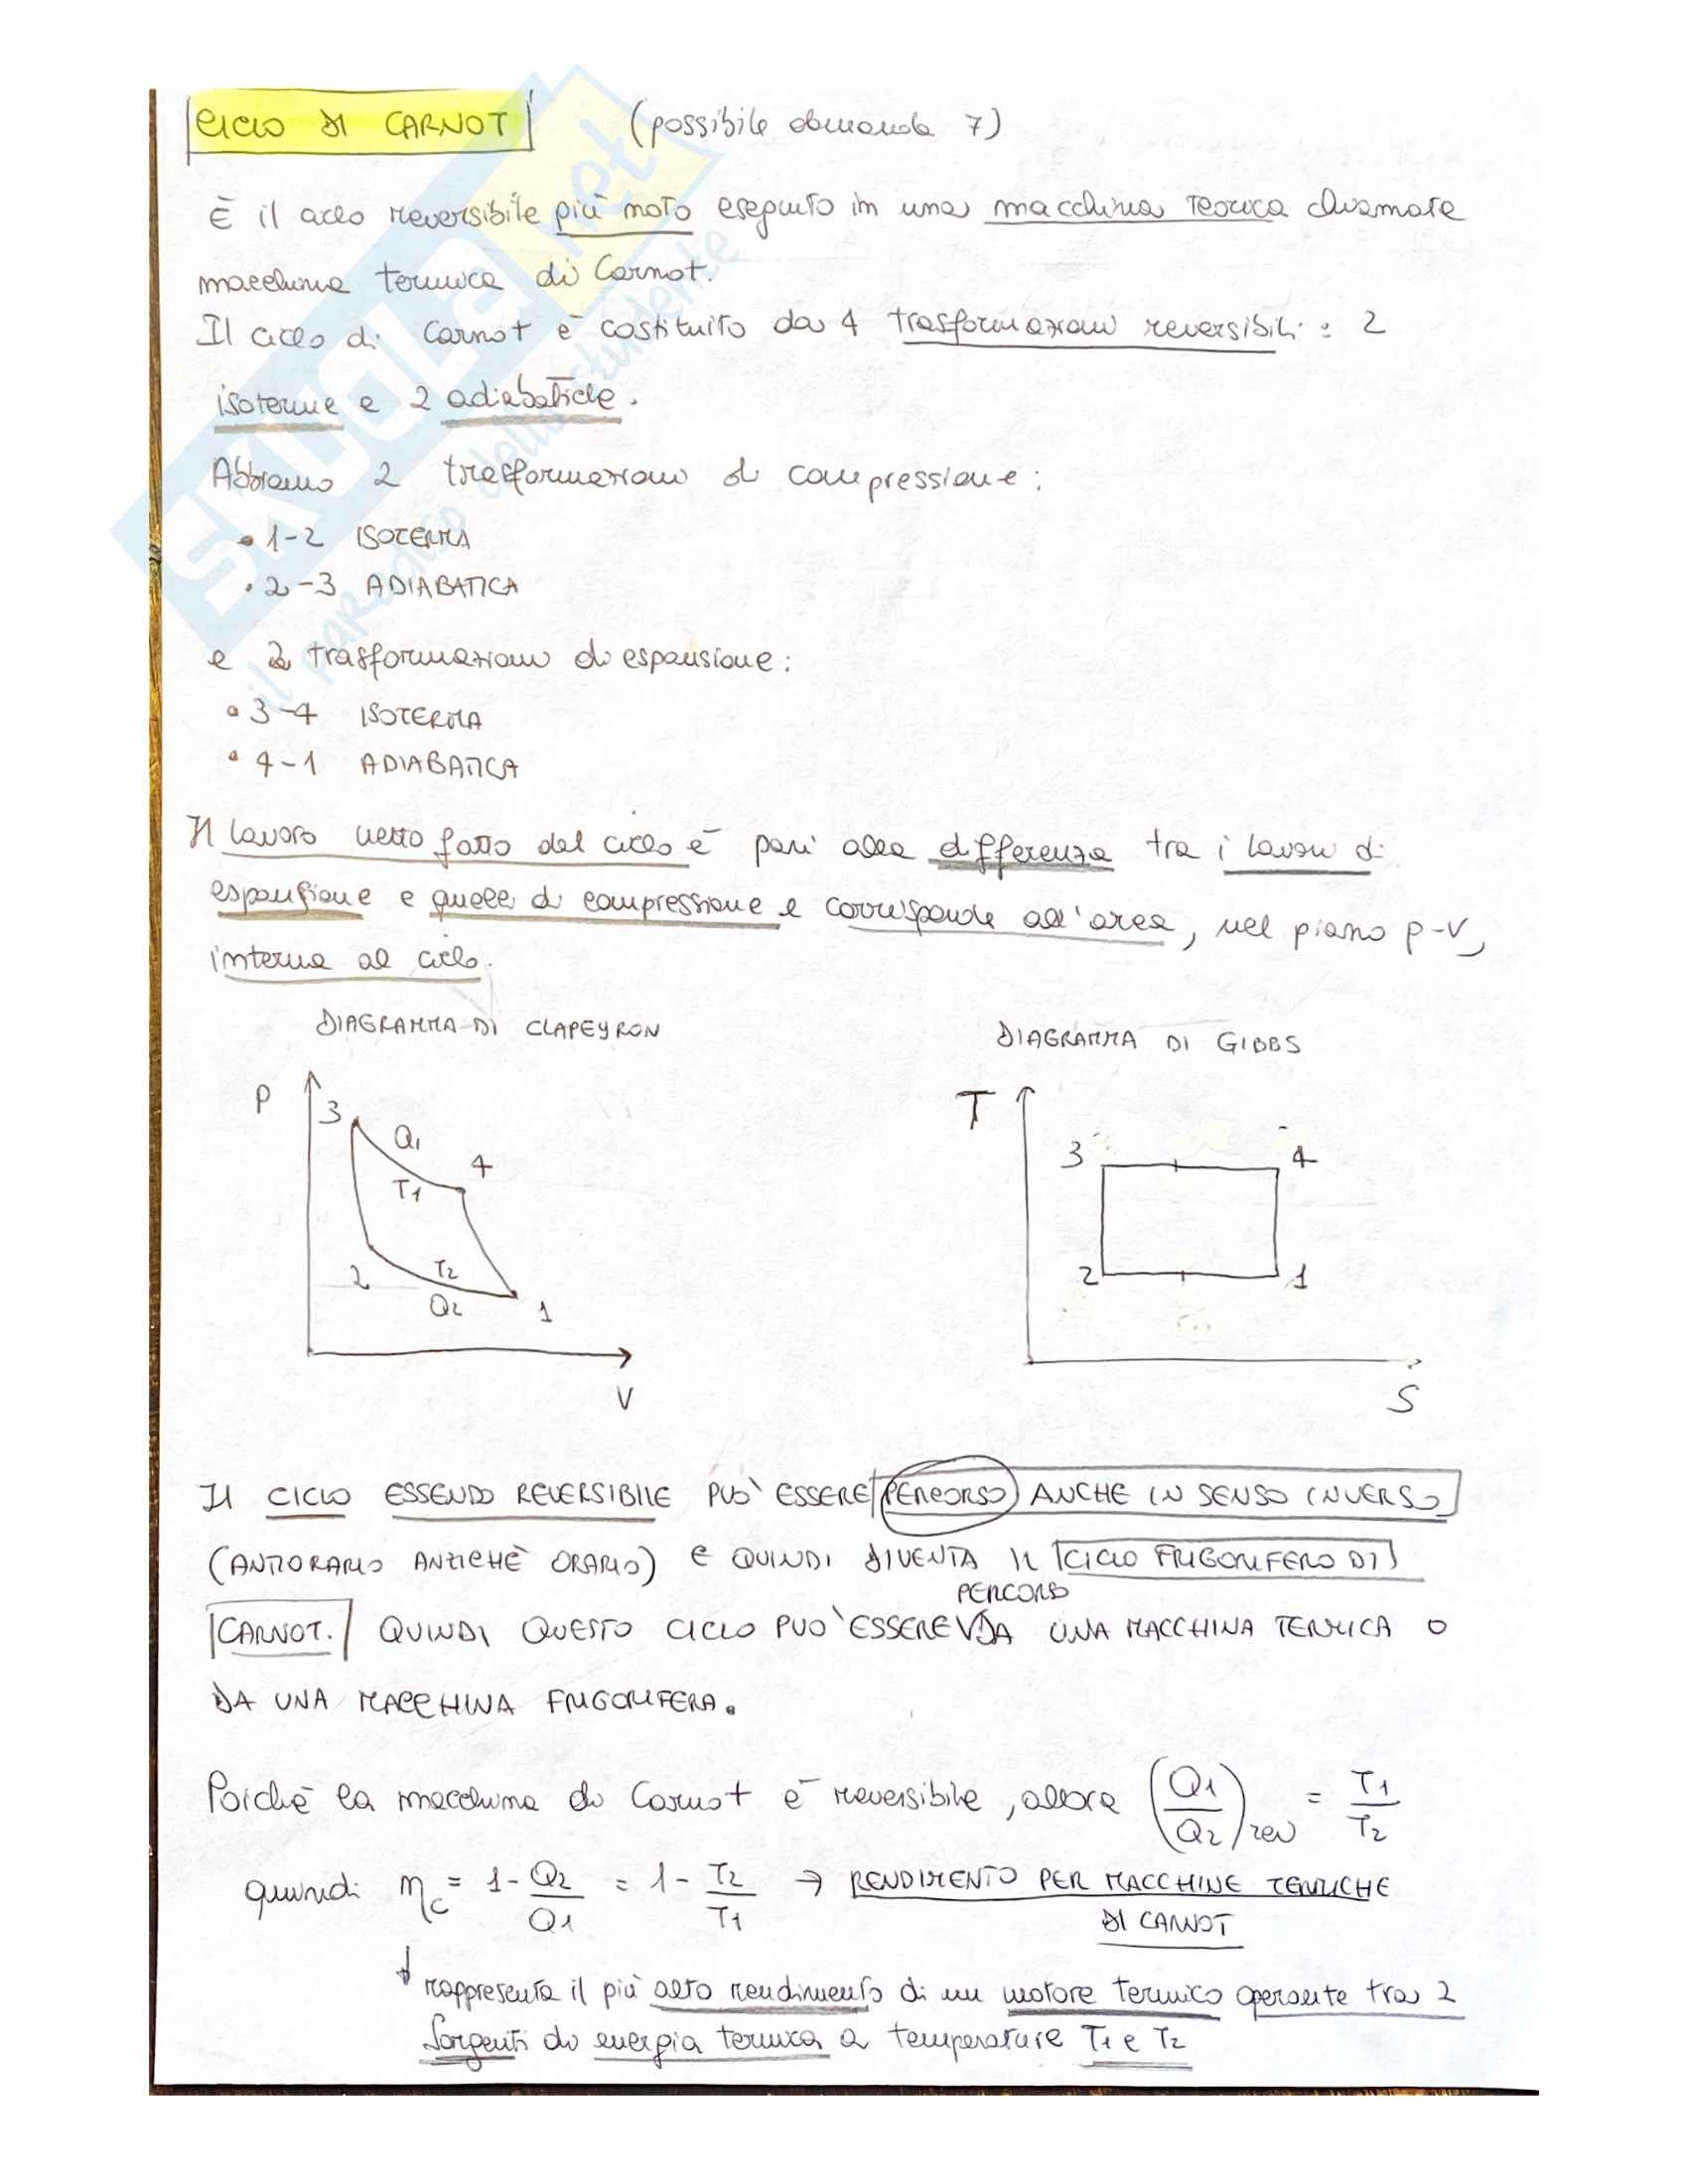 CICLO DI CARNOT (possibile domanda 7)
È il ciclo reversibile più noto eseguito in una macchina teorica chiamata
macchina termica di Carnot.
Il ciclo di Carnot è costituito da 4 trasformazioni reversibili: 2
isoterme e 2 adiabatiche.
Abbiamo 2 trasformazioni di compressione:
• 1-2 ISOTERMA
• 2-3 ADIABATICA
e 2 trasformazioni di espansione:
• 3-4 ISOTERMA
• 4-1 ADIABATICA
Il lavoro netto fatto dal ciclo è pari alla differenza tra i lavori di
espansione e quelli di compressione e corrisponde all'area, nel piano p-V,
interna al ciclo.
DIAGRAMMA DI CLAPEYRON
DIAGRAMMA DI GIBBS
P
3
Q1
4
T1
2
T2
Q2
1
V
T
3
4
2
1
S
Il CICLO ESSENDO REVERSIBILE PUO' ESSERE PERCORSO ANCHE IN SENSO INVERSO
(ANTIORARIO ANZICHÈ ORARIO) E QUINDI DIVENTA IL CICLO FRIGORIFERO DI
PERCORSO
CARNOT. QUINDI QUESTO CICLO PUO' ESSERE DA UNA MACCHINA TERMICA O
DA UNA MACCHINA FRIGORIFERA.
Poichè la macchina di Carnot è reversibile, allora (Q1/Q2)rev = T1/T2
quindi ηc = 1 - Q2/Q1 = 1 - T2/T1 → RENDIMENTO PER MACCHINE TERMICHE
DI CARNOT
↓ rappresenta il più alto rendimento di un motore termico operante tra 2
Sorgenti di energia termica a temperature T1 e T2
SKUOLA.net
il paradiso dello studente